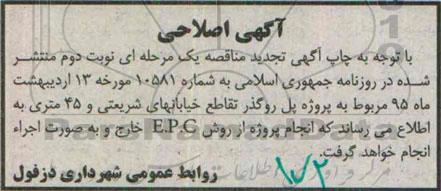 آگهی اصلاحی
با توجه به چاپ آگهی تجدید مناقصه یک مرحله ای نوبت دوم منتشر
شده در روزنامه جمهوری اسلامی به شماره ۱۰۵۸۱ مورخه ۱۳ اردیبهشت
ماه ۹۵ مربوط به پروژه پل روگذر تقاطع خیابانهای شریعتی و ۴۵ متری به
اطلاع می رساند که انجام پروژه از روش E.P.C خارج و به صورت اجراء
انجام خواهد گرفت.
روابط عمومی شهرداری دزفول